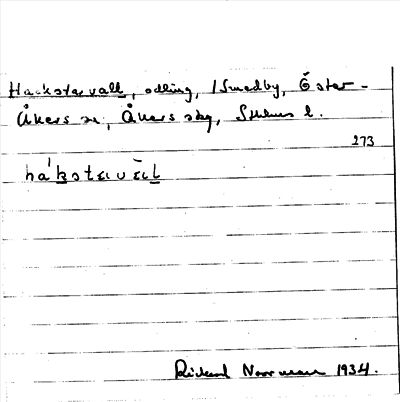 Hackstavall, odling, /Smedby, Öster-
Åkers sn, Åkers skg, Sthlms l.
273
håkstavàl
Rickard Norrman 1934.